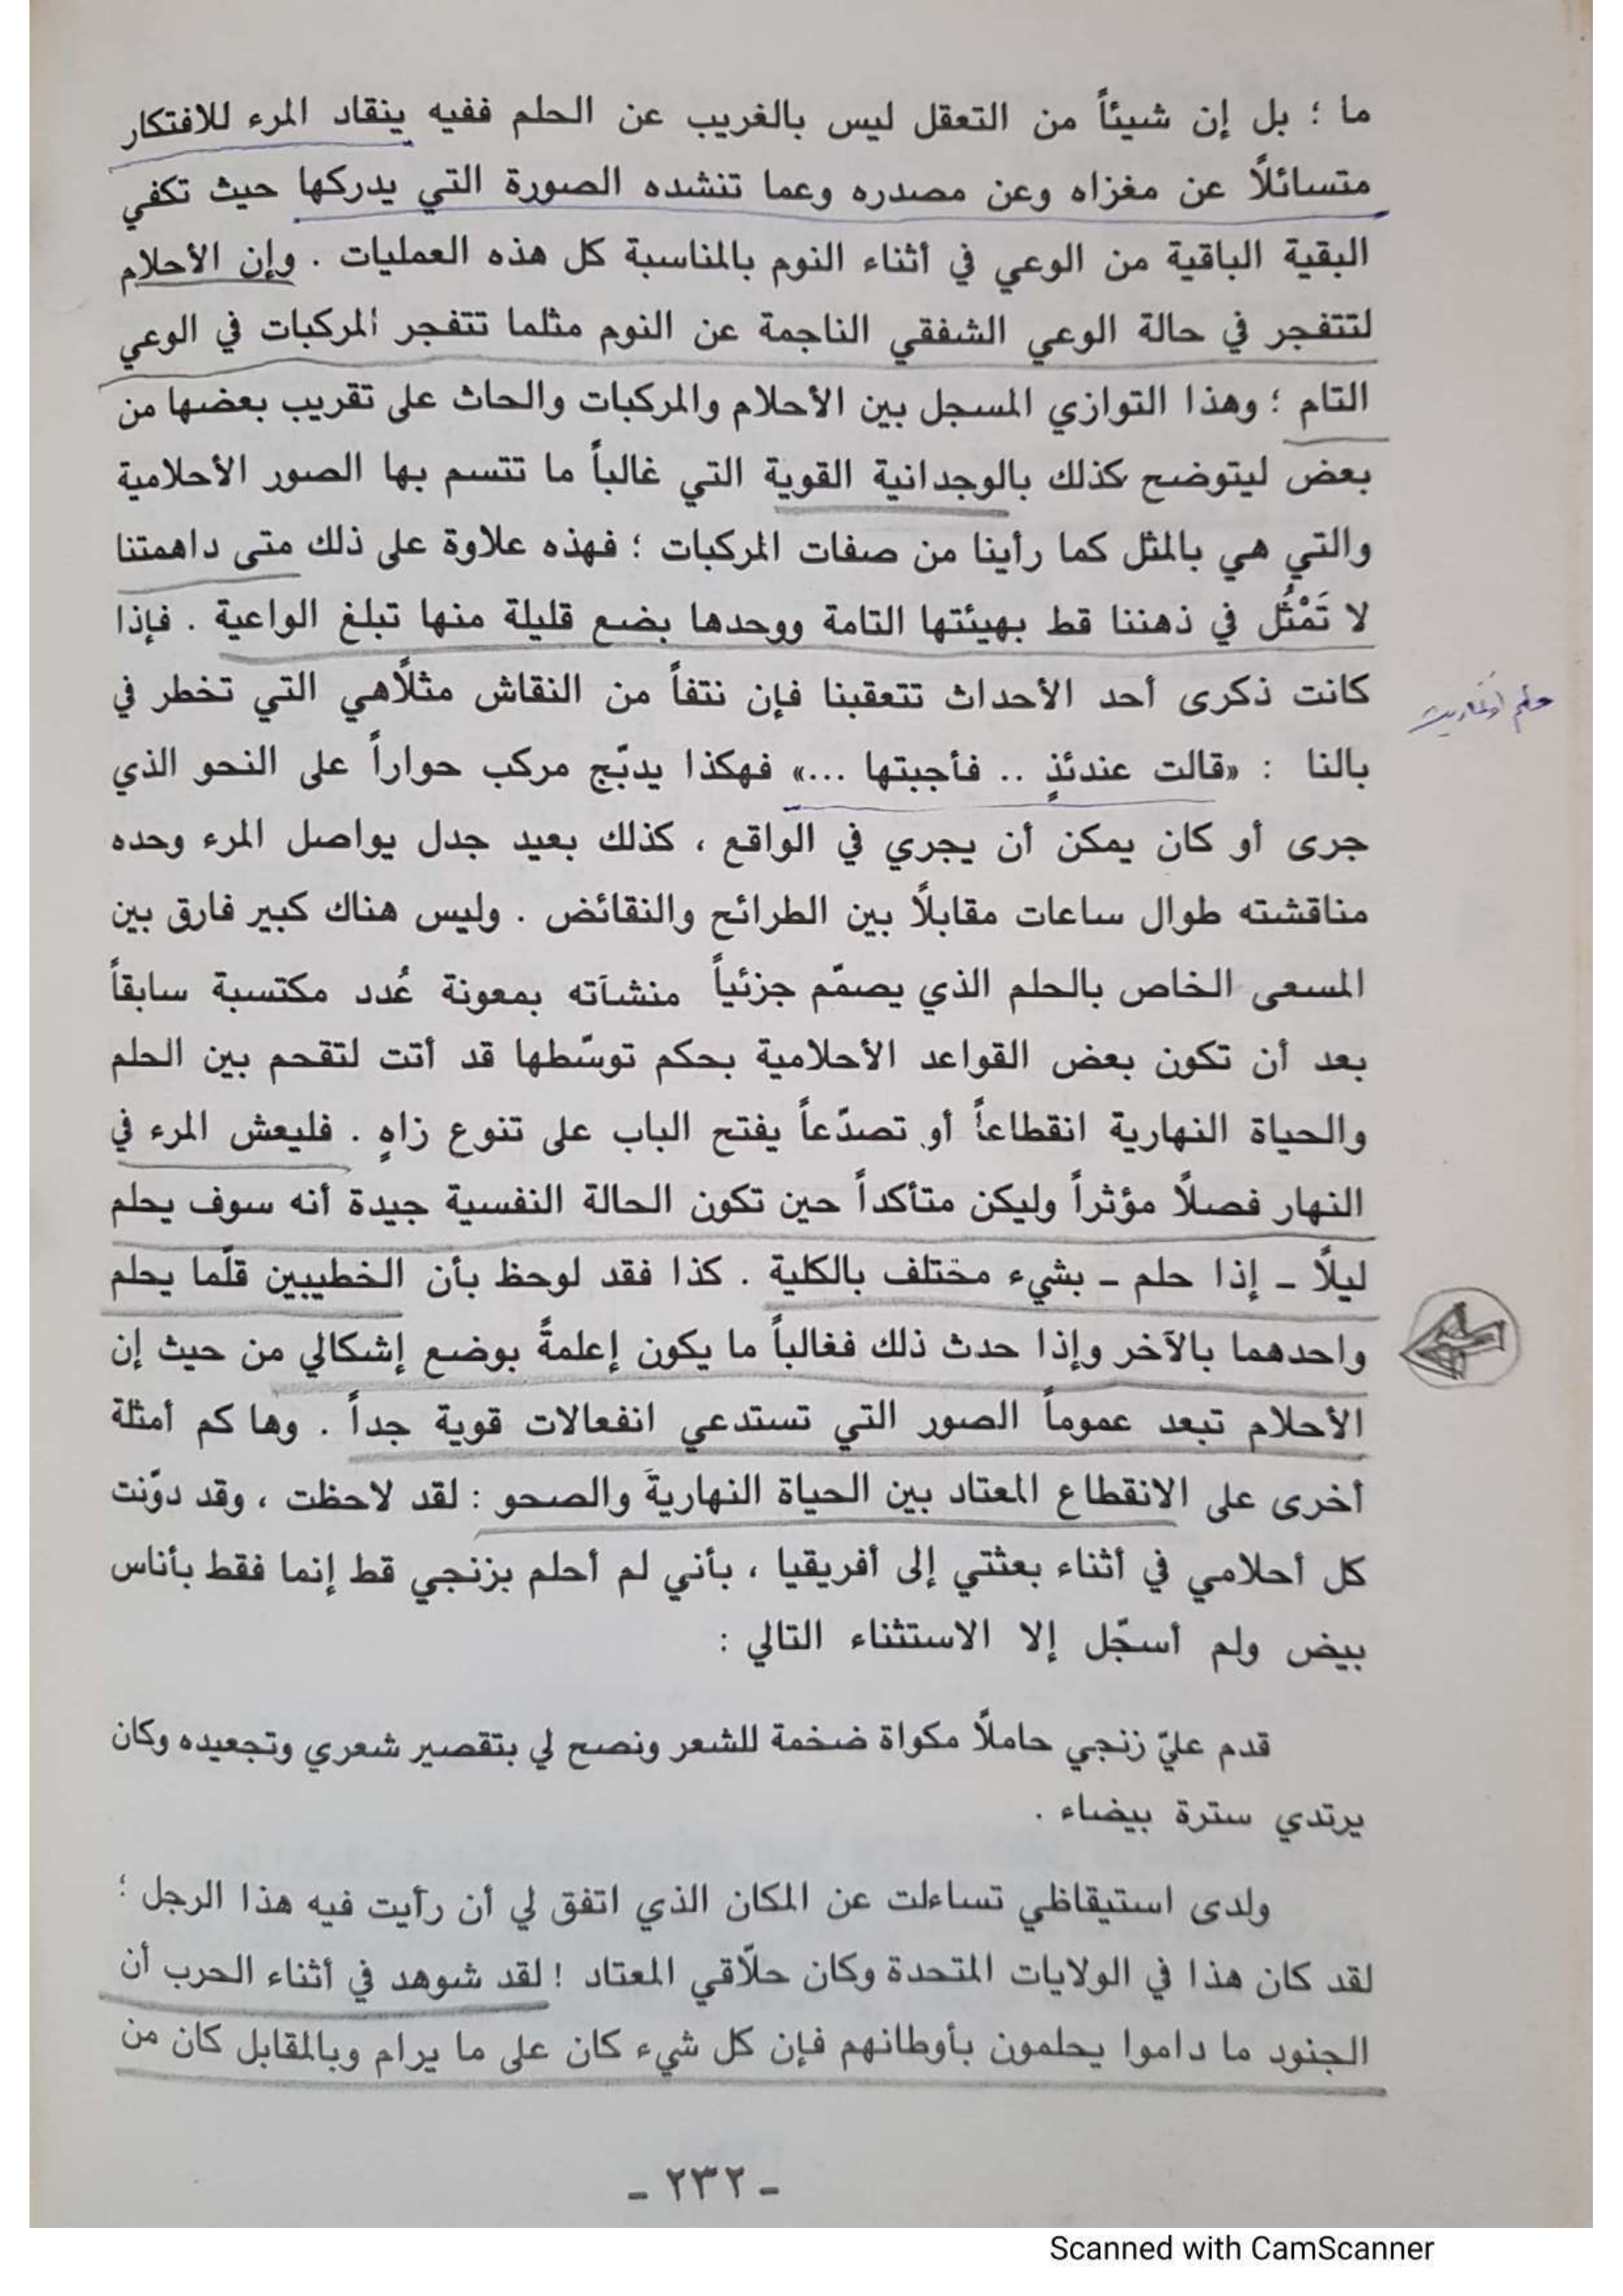 ما ؛ بل إن شيئاً من التعقل ليس بالغريب عن الحلم ففيه ينقاد المرء للافتكار
متسائلاً عن مغزاه وعن مصدره وعما تنشده الصورة التي يدركها حيث تكفي
البقية الباقية من الوعي في أثناء النوم بالمناسبة كل هذه العمليات . وإن الأحلام
لتتفجر في حالة الوعي الشفقي الناجمة عن النوم مثلما تتفجر المركبات في الوعي
التام ؛ وهذا التوازي المسجل بين الأحلام والمركبات والحاث على تقريب بعضها من
بعض ليتوضح كذلك بالوجدانية القوية التي غالباً ما تتسم بها الصور الأحلامية
والتي هي بالمثل كما رأينا من صفات المركبات ؛ فهذه علاوة على ذلك متى داهمتنا
لا تَمْثُل في ذهننا قط بهيئتها التامة ووحدها بضع قليلة منها تبلغ الواعية . فإذا
كانت ذكرى أحد الأحداث تتعقبنا فإن نتفاً من النقاش مثلاً هي التي تخطر في
حلم
بالنا : «قالت عندئذٍ .. فأجبتها ...» فهكذا يدبّج مركب حواراً على النحو الذي
جرى أو كان يمكن أن يجري في الواقع ، كذلك بعيد جدل يواصل المرء وحده
مناقشته طوال ساعات مقابلاً بين الطرائح والنقائض . وليس هناك كبير فارق بين
المسعى الخاص بالحلم الذي يصمّم جزئياً منشآته بمعونة عُدد مكتسبة سابقاً
بعد أن تكون بعض القواعد الأحلامية بحكم توسّطها قد أتت لتقحم بين الحلم
والحياة النهارية انقطاعاً أو تصدّعاً يفتح الباب على تنوع زاهٍ . فليعش المرء في
النهار فصلاً مؤثراً وليكن متأكداً حين تكون الحالة النفسية جيدة أنه سوف يحلم
ليلاً ـ إذا حلم ـ بشيء مختلف بالكلية . كذا فقد لوحظ بأن الخطيبين قلّما يحلم
واحدهما بالآخر وإذا حدث ذلك فغالباً ما يكون إعلمةً بوضع إشكالي من حيث إن
الأحلام تبعد عموماً الصور التي تستدعي انفعالات قوية جداً . وهاكم أمثلة
أخرى على الانقطاع المعتاد بين الحياة النهارية والصحو : لقد لاحظت ، وقد دوّنت
كل أحلامي في أثناء بعثتي إلى أفريقيا ، بأني لم أحلم بزنجي قط إنما فقط بأناس
بيض ولم أسجّل إلا الاستثناء التالي :
قدم عليّ زنجي حاملاً مكواة ضخمة للشعر ونصح لي بتقصير شعري وتجعيده وكان
يرتدي سترة بيضاء .
ولدى استيقاظي تساءلت عن المكان الذي اتفق لي أن رأيت فيه هذا الرجل ؛
لقد كان هذا في الولايات المتحدة وكان حلّاقي المعتاد ! لقد شوهد في أثناء الحرب أن
الجنود ما داموا يحلمون بأوطانهم فإن كل شيء كان على ما يرام وبالمقابل كان من
ـ ٢٣٢ ـ
Scanned with CamScanner